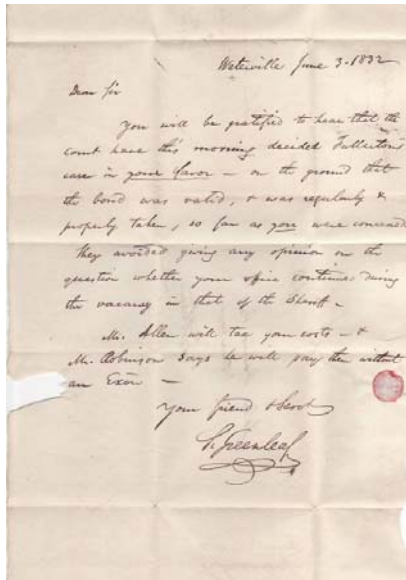 Waterville June 3. 1832
Dear Sir
You will be gratified to hear that the
court have this morning decided Fullerton's
case in your favor – on the ground that
the bond was valid, & was regularly &
properly taken, so far as you were concerned
They avoided giving any opinion on the
question whether your office continues during
the vacancy in that of the Sheriff –
Mr. Allen will tax your costs – &
Mr. Robinson says he will pay them without
an Exōn –
Your friend & Servt
S. Greenleaf